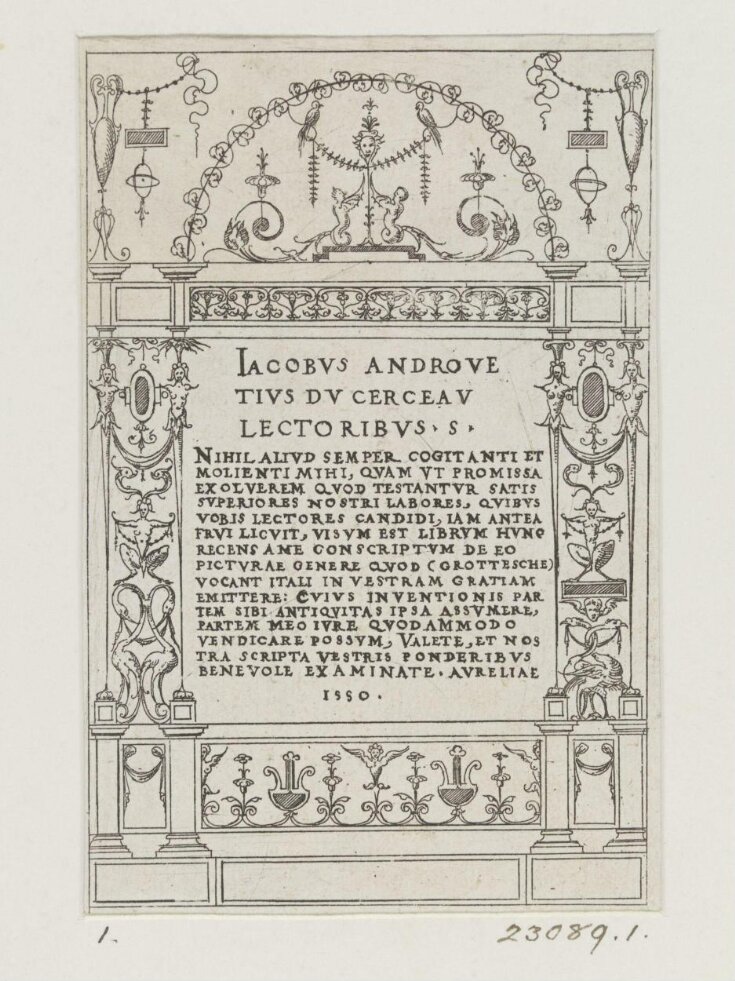 IACOBVS ANDROVE
TIVS DV CERCEAV
LECTORIBVS · S ·
NIHIL ALIVD SEMPER COGITANTI ET
MOLIENTI MIHI, QVAM VT PROMISSA
EXOLVEREM QVOD TESTANTVR SATIS
SVPERIORES NOSTRI LABORES, QVIBVS
VOBIS LECTORES CANDIDI, IAM ANTEA
FRVI LICVIT, VISVM EST LIBRVM HVNC
RECENS A ME CONSCRIPTVM DE EO
PICTVRAE GENERE QVOD (GROTTESCHE)
VOCANT ITALI IN VESTRAM GRATIAM
EMITTERE: CVIVS INVENTIONIS PAR
TEM SIBI ANTIQVITAS IPSA ASSVMERE,
PARTEM MEO IVRE QVODAMMODO
VENDICARE POSSVM, VALETE, ET NOS
TRA SCRIPTA VESTRIS PONDERIBVS
BENEVOLE EXAMINATE. AVRELIAE
1550.
1.
23089.1.